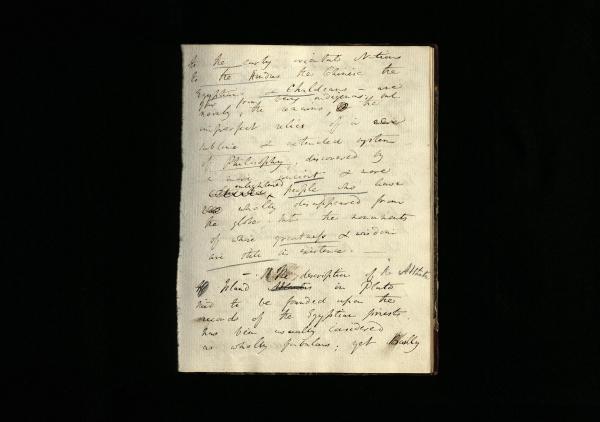 to the early orientals Nations
to the Hindus the Chinese the
Egyptians & Chaldeans – are
far from being indigenous, but
merely the remains, the
imperfect relics of a
sublime & extended system
of Philosophy, discovered by
a more ancient & more
enlightened people who have
wholly disappeared from
the globe tho the monuments
of whose greatness & wisdom
are still in existence. —
— The description of the Atlantic
Island in Plato
said to be founded upon the
records of the Egyptian priests.
has been usually considered
as wholly fabulous; yet Bailly